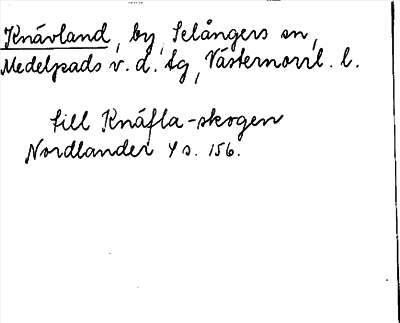 Knävland, by, Selångers sn,
Medelpads v. d. tg, Västernorrl. l.
till Knäfla-skogen
Nordlander 4 s. 156.